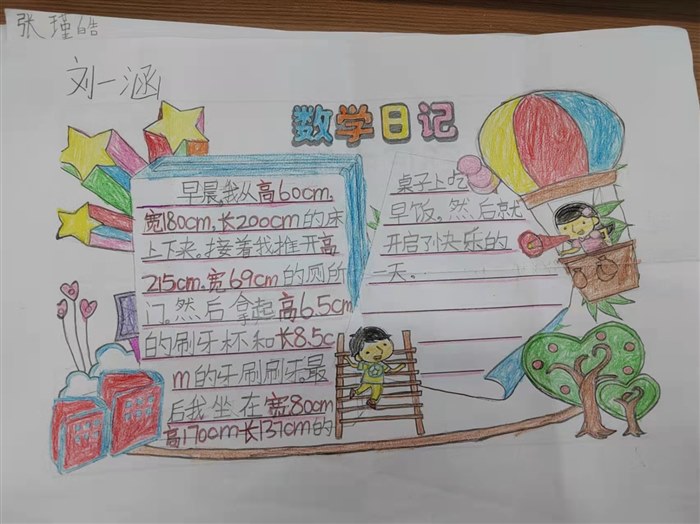 张瑾皓
刘一涵
数学日记
早晨,我从高60cm,
宽180cm,长200cm的床
上下来,接着我推开高
215cm,宽69cm的厕所
门。然后拿起高6.5cm
的刷牙杯和长8.5c
m的牙刷刷牙。最
后我坐在宽80cm
高170cm长137cm的
桌子上吃
早饭。然后就
开启了快乐的
一天。